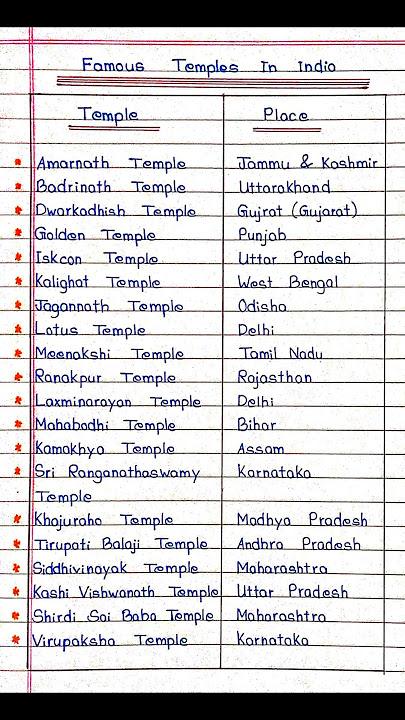 Famous Temples In India
Temple Place
Amarnath Temple Jammu & Kashmir
Badrinath Temple Uttarakhand
Dwarkadhish Temple Gujrat (Gujarat)
Golden Temple Punjab
Iskcon Temple Uttar Pradesh
Kalighat Temple West Bengal
Jagannath Temple Odisha
Lotus Temple Delhi
Meenakshi Temple Tamil Nadu
Ranakpur Temple Rajasthan
Laxminarayan Temple Delhi
Mahabodhi Temple Bihar
Kamakhya Temple Assam
Sri Ranganathaswamy Karnataka
Temple
Khajuraho Temple Madhya Pradesh
Tirupati Balaji Temple Andhra Pradesh
Siddhivinayak Temple Maharashtra
Kashi Vishwanath Temple Uttar Pradesh
Shirdi Sai Baba Temple Maharashtra
Virupaksha Temple Karnataka